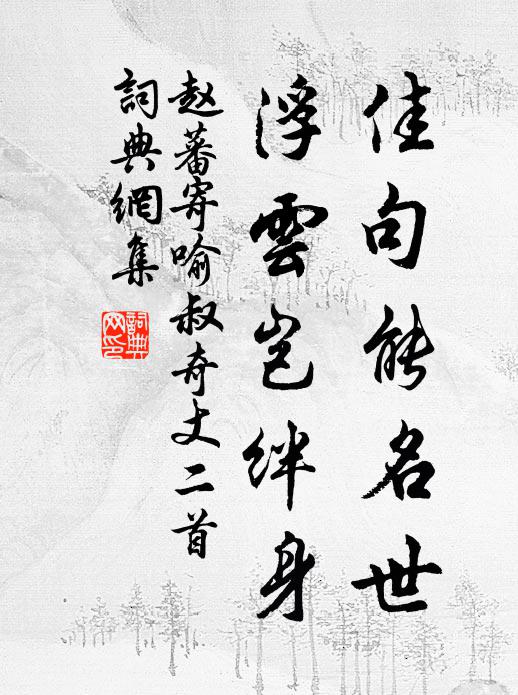 佳句能名世
浮雲豈絆身
赵蕃寄喻叔奇丈二首
詞典網集
詞典网印